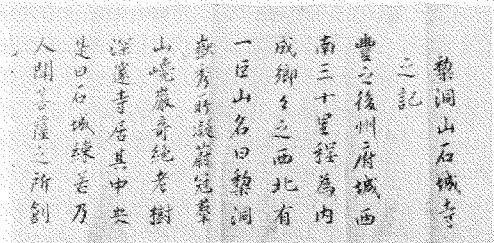 黎洞山石城寺
之記
豊之後州府城西
南三十里程為内
成鄉々之西北有
一巨山名曰黎洞
嶽秀時凝蔚冠羣
山峻巖奇絶老樹
深邃寺居其中央
是曰石城練若乃
人聞菩薩之所創